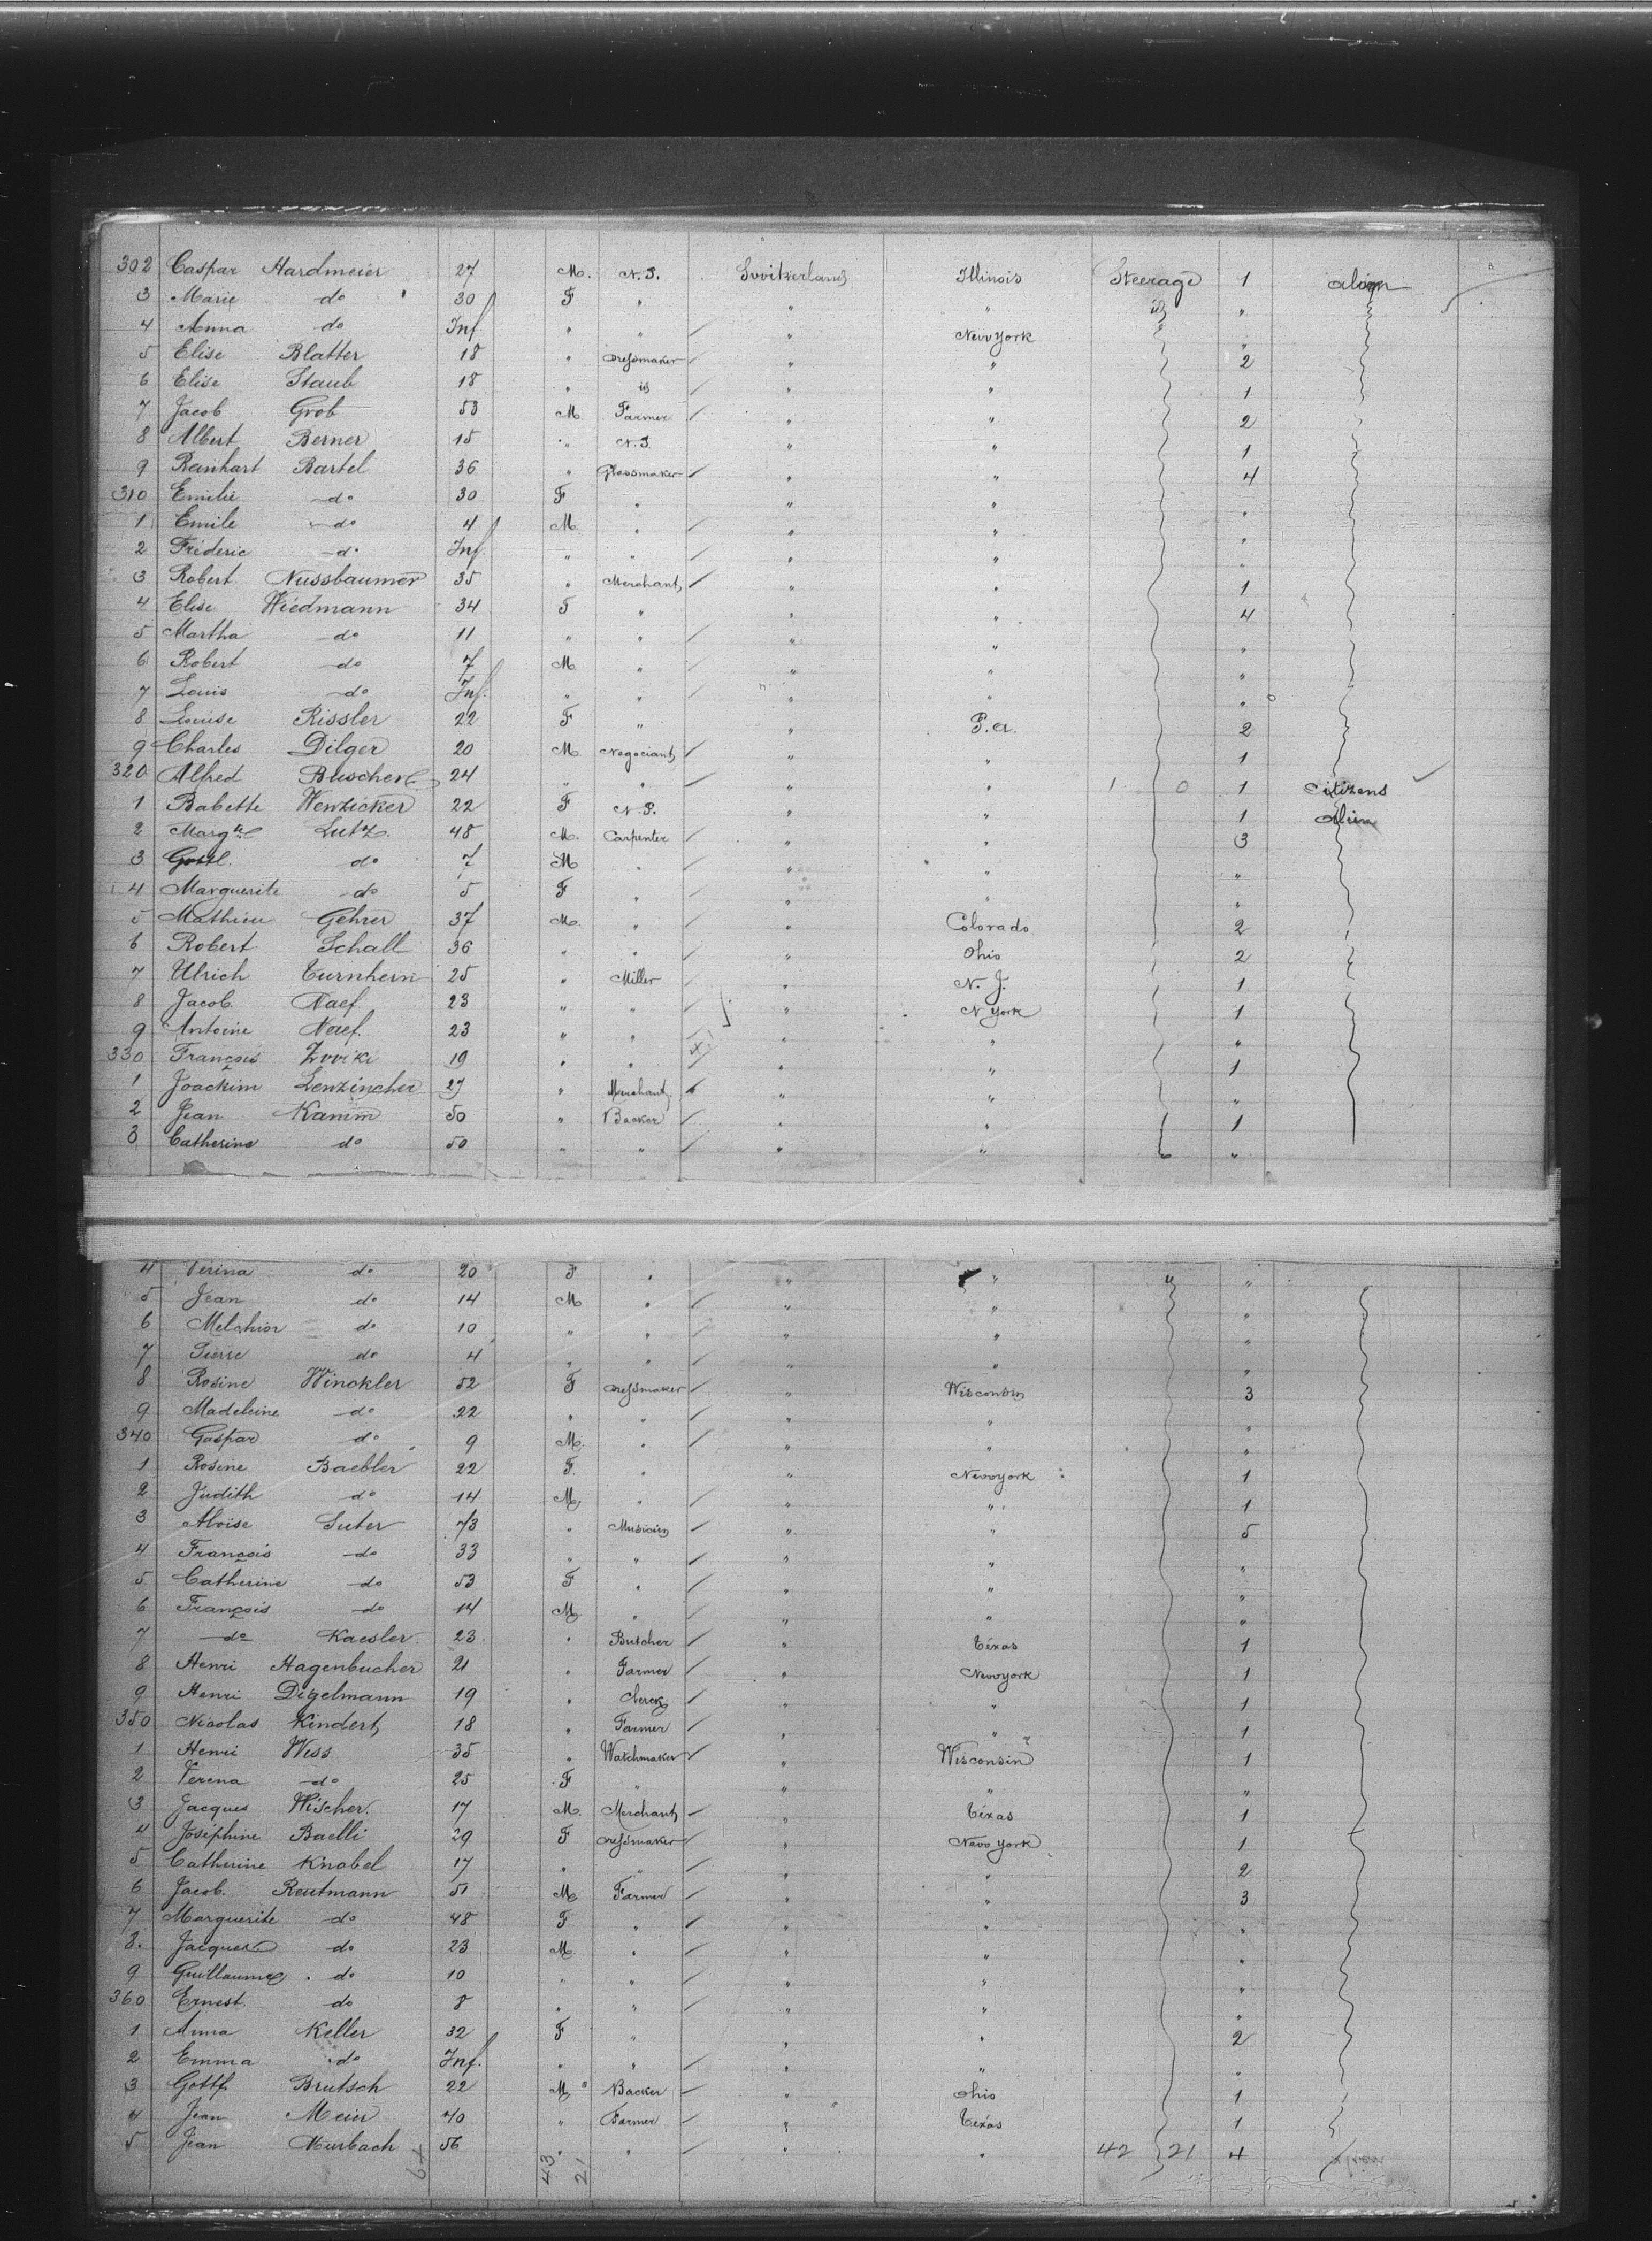 302 Caspar Hardmeier 27 M. N.S. Switzerland Illinois Steerage 1 alien
3 Marie do 30 F " " " id "
4 Anna do Inf. " " " New York " "
5 Elise Blatter 18 " Dressmaker " " 2
6 Elise Staub 18 " id " " 1
7 Jacob Grob 53 M Farmer " " 2
8 Albert Berner 15 " N.S. " " 1
9 Reinhart Bartel 36 " Glassmaker " " 4
310 Emilie do 30 F " " " "
1 Emile do 4 M " " " "
2 Fréderic do Inf. " " " " "
3 Robert Nussbaumer 35 " Merchant " " 1
4 Elise Wiedmann 34 F " " " 4
5 Martha do 11 " " " " "
6 Robert do 7 M " " " "
7 Louis do Inf. " " " " "
8 Louise Rissler 22 F " " P.a. 2
9 Charles Dilger 20 M Negociant " " 1
320 Alfred 24 " " " " 1 0 1 Citizens
1 Babette Wenzicker 22 F N.S. " " 1 Alien
2 Margte Lutz 48 M. Carpenter " " 3
3 Gottl. do 7 M " " " "
4 Marguerite do 5 F " " " "
5 Mathieu Gehrer 37 M. " " Colorado 2
6 Robert Schall 36 " " " Ohio 2
7 Ulrich Turnherr 25 " Miller " N. J. 1
8 Jacob Naef 23 " " " N York 1
9 Antoine Naef. 23 " " " " "
330 François Zwiki 19 " " " " 1
1 Joackim Lenzincher 27 " Merchant " " "
2 Jean Kamm 50 " Backer " " 1
3 Catherine do 50 " " " " "
4 Verina do 20 F " " " " "
5 Jean do 14 M " " " "
6 Melchior do 10 " " " " "
7 Pierre do 4 " " " " "
8 Rosine Winckler 52 F Dressmaker " Wisconsin 3
9 Madeleine do 22 " " " " "
340 Gaspar do 9 M. " " " "
1 Rosine Baebler 22 F. " " New york 1
2 Judith do 14 M. " " " 1
3 Aloise Suter 73 " Musicien " " 5
4 François do 33 " " " " "
5 Catherine do 53 F " " " "
6 François do 14 M " " " "
7 do Kaesler 23 " Butcher " Téxas 1
8 Henri Hagenbucher 21 " Farmer " New york 1
9 Henri Digelmann 19 " Clerck " " 1
350 Nicolas Kindert 18 " Farmer " " 1
1 Henri Wiss 35 " Watchmaker " Wisconsin 1
2 Verena do 25 F " " " "
3 Jacques Wischer. 17 M. Merchant " Téxas 1
4 Joséphine Baelli 29 F Dressmaker " New york 1
5 Catherine Knobel 17 " " " " 2
6 Jacob. Reutmann 51 M Farmer " " 3
7 Marguerite do 48 F " " " "
8. Jacques do 23 M " " " "
9 Guillaume do 10 " " " " "
360 Ernest do 8 " " " " "
1 Anna Keller 32 F " " " 2
2 Emma do Inf. " " " " "
3 Gottf Brutsch 22 M " Backer " Ohio 1
4 Jean Meier 40 " Farmer " Texas 1
5 Jean Murbach 56 " " " " 42 21 4
64 43 21